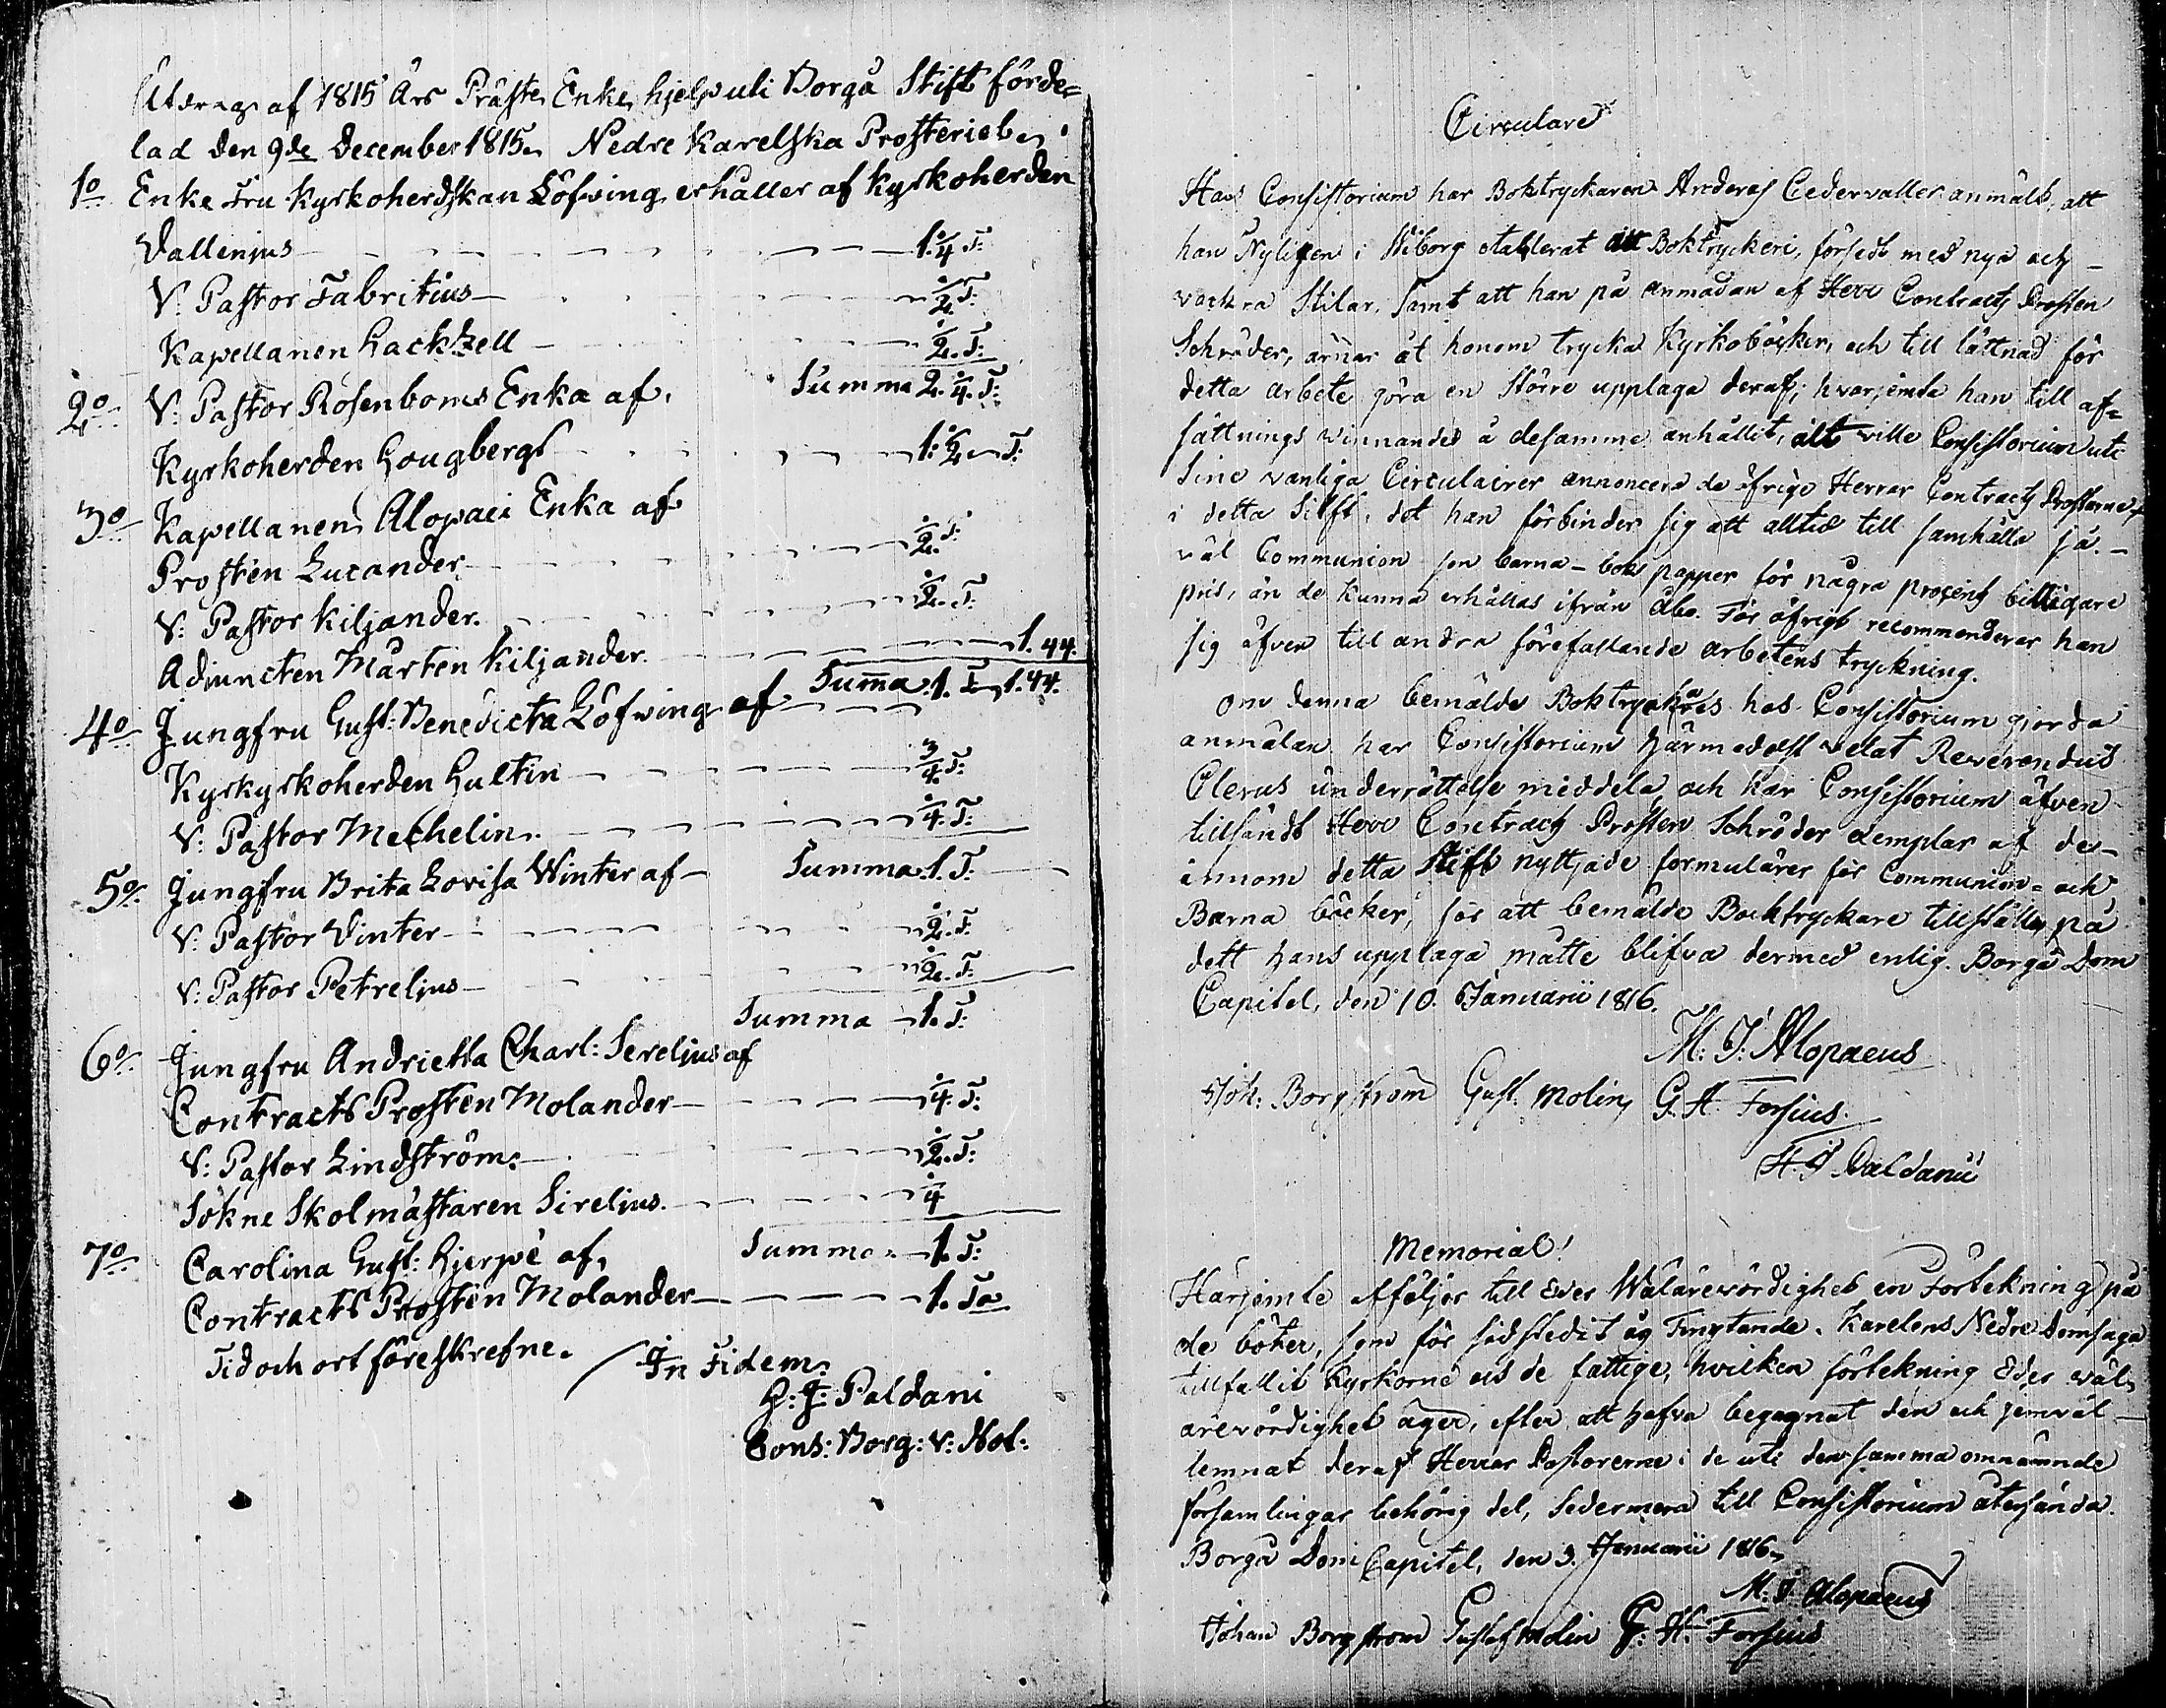 Utdrag af 1815 Års Präste Enke hjelp uti Borgå Stift förde=
lad den 9de December 1815. Nedre Karelska Prosteriet.
1o Enke Fru Kyrkoherdskan Löfving erhåller af Kyrkoherden
Vallenius 1. 1/4 T:
V: Pastor Fabritius 1/2 T:
Kapellanen Hackzell 1/2. T:
Summa 2. 1/4. T:
2o V: Pastor Rosenboms Enka af.
Kyrkoherden Hougberg 1: 1/2 T:
3o Kapellanen Alopaei Enka af
Prosten Lucander 1/2. T:
V: Pastor Kiljander. 1/2. T:
Adjuncten Mårten Kiljander. 1. 44.
Summa. 1. T. 1. 44.
4o Jungfru Gust: Benedicta Löfving af
Kyrkyrkoherden Hultin 3/4. T:
V: Pastor Mechelin. 1/4. T:
Summa. 1. T:
5o Jungfru Brita Lovisa Winter af
V: Pastor Vinter 1/2. T:
V: Pastor Petrelius 1/2. T:
Summa 1. T:
6o Jungfru Andrietta Charl: Serelius af
Contracts Prosten Molander 1/4. T:
V: Pastor Lindström. 1/2. T:
Sokne Skolmästaren Sirelius. 1/4
Summa. 1. T:
7o Carolina Gust: Hjerpe af,
Contracts Prosten Molander 1. Ta
Tid och ort föreskrefne.
In Fidem.
H: J: Paldani
Cons: Borg: V: Not:
Circulare
Hos Consistorium har Boktryckaren Anders Cedervaller anmält, att
han Nyligen i Wiborg etablerat ett Boktryckeri, försedt med nya och
vackra Stilar, samt att han på anmodan af Herr Contracts Prosten
Schröder, ärnar åt honom trycka Kyrkoböcker, och till lättnad för
detta arbete göra en större upplaga deraf; hvarjemte han till af=
sättnings vinnande å desamme anhållit, att ville Consistorium uti
Sine vanliga Circulairer annoncera de öfrige Herrar Contracts Prostarne
i detta Stift, det han förbinder sig att alltid till samhälle så
väl Communion som barna-boks papper för några procent billigare
pris, än de kunna erhållas ifrån Åbo. För öfrigt recommenderar han
sig äfven till andra förefallande arbetens tryckning.
Om denna bemälde Boktryckares hos Consistorium gjorda
anmälan har Consistorium härmedelst velat Reverendus
Clerus underrättelse meddela och har Consistorium äfven
tillsändt Herr Contracts Prosten Schröder exemplar af de
innom detta Stift nyttjade formulärer för Communion= och
Barna böcker, för att bemälde Bocktryckare tillställas, på
dett hans upplaga måtte blifva dermed enlig. Borgå Dom
Capitel, den 10. Januarii 1816.
M: J: Alopaeus
Joh: Borgström Gust. Molin, G. H. Forsius.
H. J. Paldani
Memorial!
Härjemte Afföljer till Eder Wälärevördighet en Förtekning på
de böter, som för sidstledit år Tingtande i Karelens Nedre Domsaga
tillfallit Kyrkorne och de fattige, hvilken förtekning Eder väl
ärevördighet äger, efter att hafva begagnat den och jemväl
lemnat deraf Herrar Pastorerne i de uti densamma omnämnde
församlingar behörig del, Sedermera till Consistorium återsända.
Borgå Dom Capitel, den 3. Januarii 1816.
M: J. Alopaeus
Johan Borgström Gustaf Molin G: H. Forsius